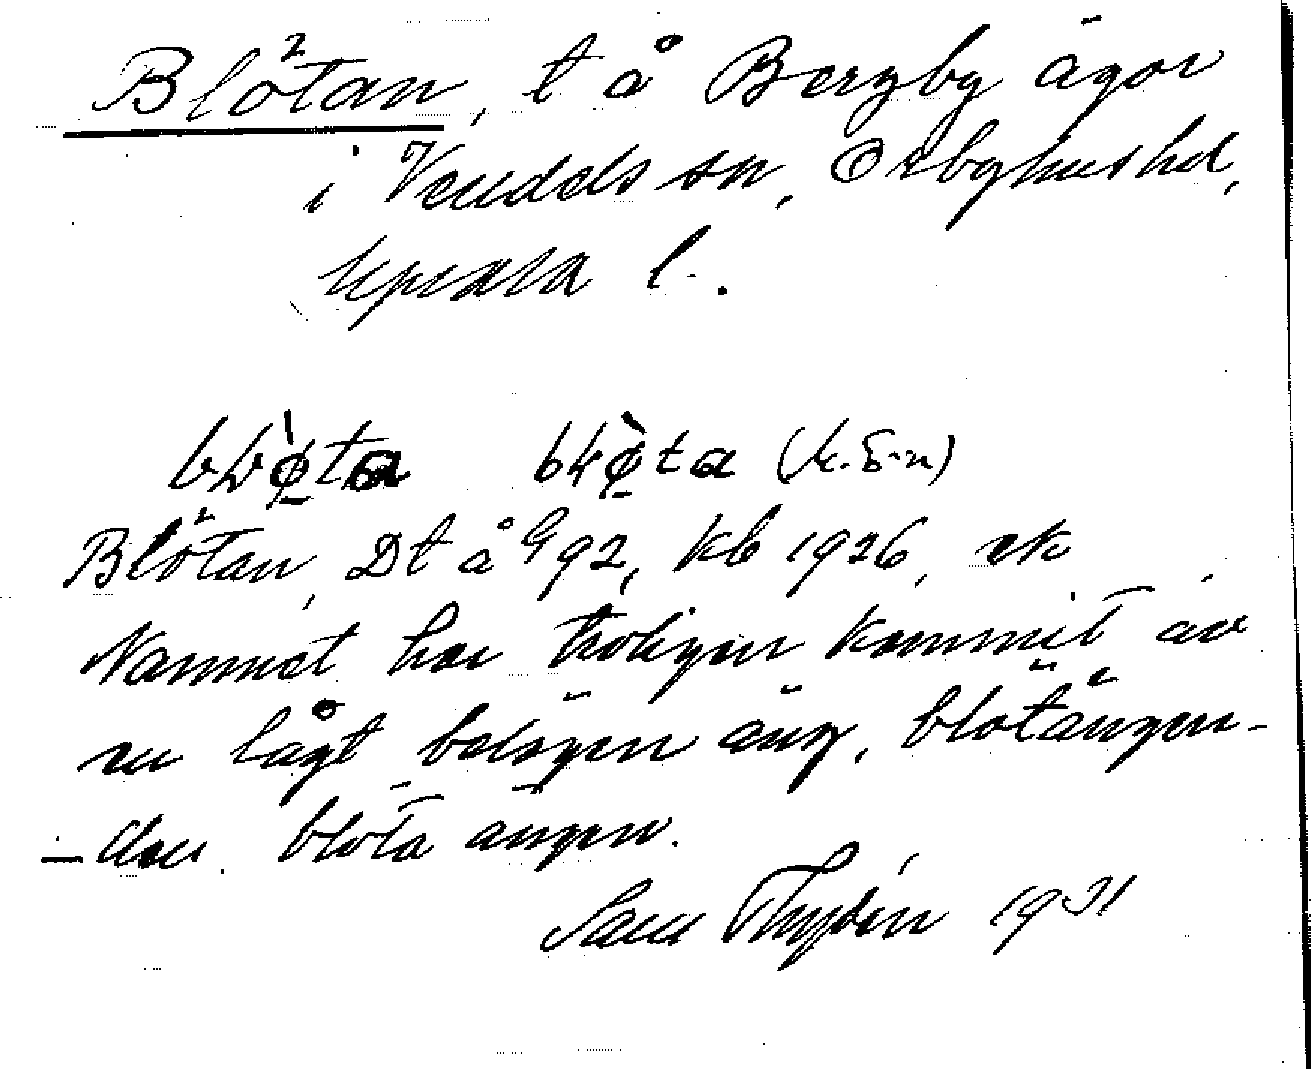 Blötan, t å Bergby ägor
i Vendels sn, Örbyhus hd,
Uppsala l.
(K.G-n)
Blötan, Dt å G 92, Kb 1926, ek
Namnet har troligen kommit av
en lågt belägen äng, blötängen -
- den blöta ängen.
Sam Thydén 1931